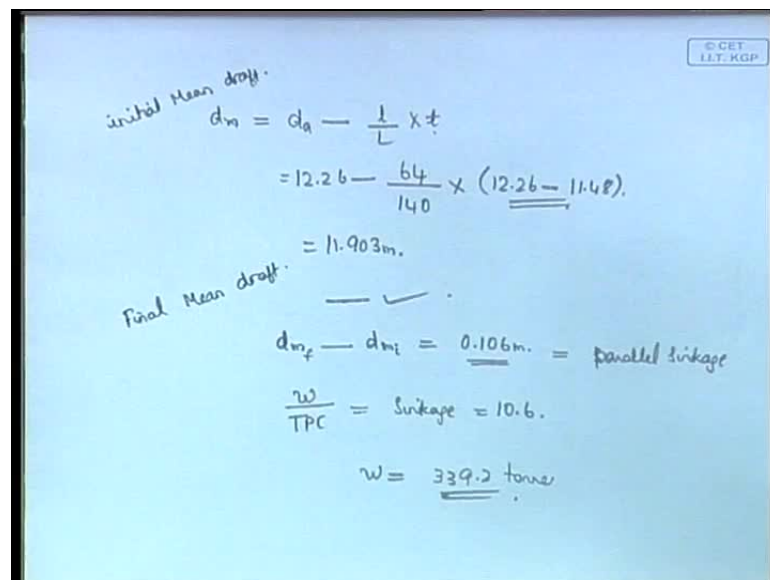 © CET
I.I.T. KGP
initial Mean draft.
dm = da — l/L × t
= 12.26 — 64/140 × (12.26 — 11.48).
= 11.903m.
Final Mean draft.
— ✓ .
dm_f — dm_i = 0.106m. = parallel Sinkage
w/TPC = Sinkage = 10.6.
w = 339.2 tonne